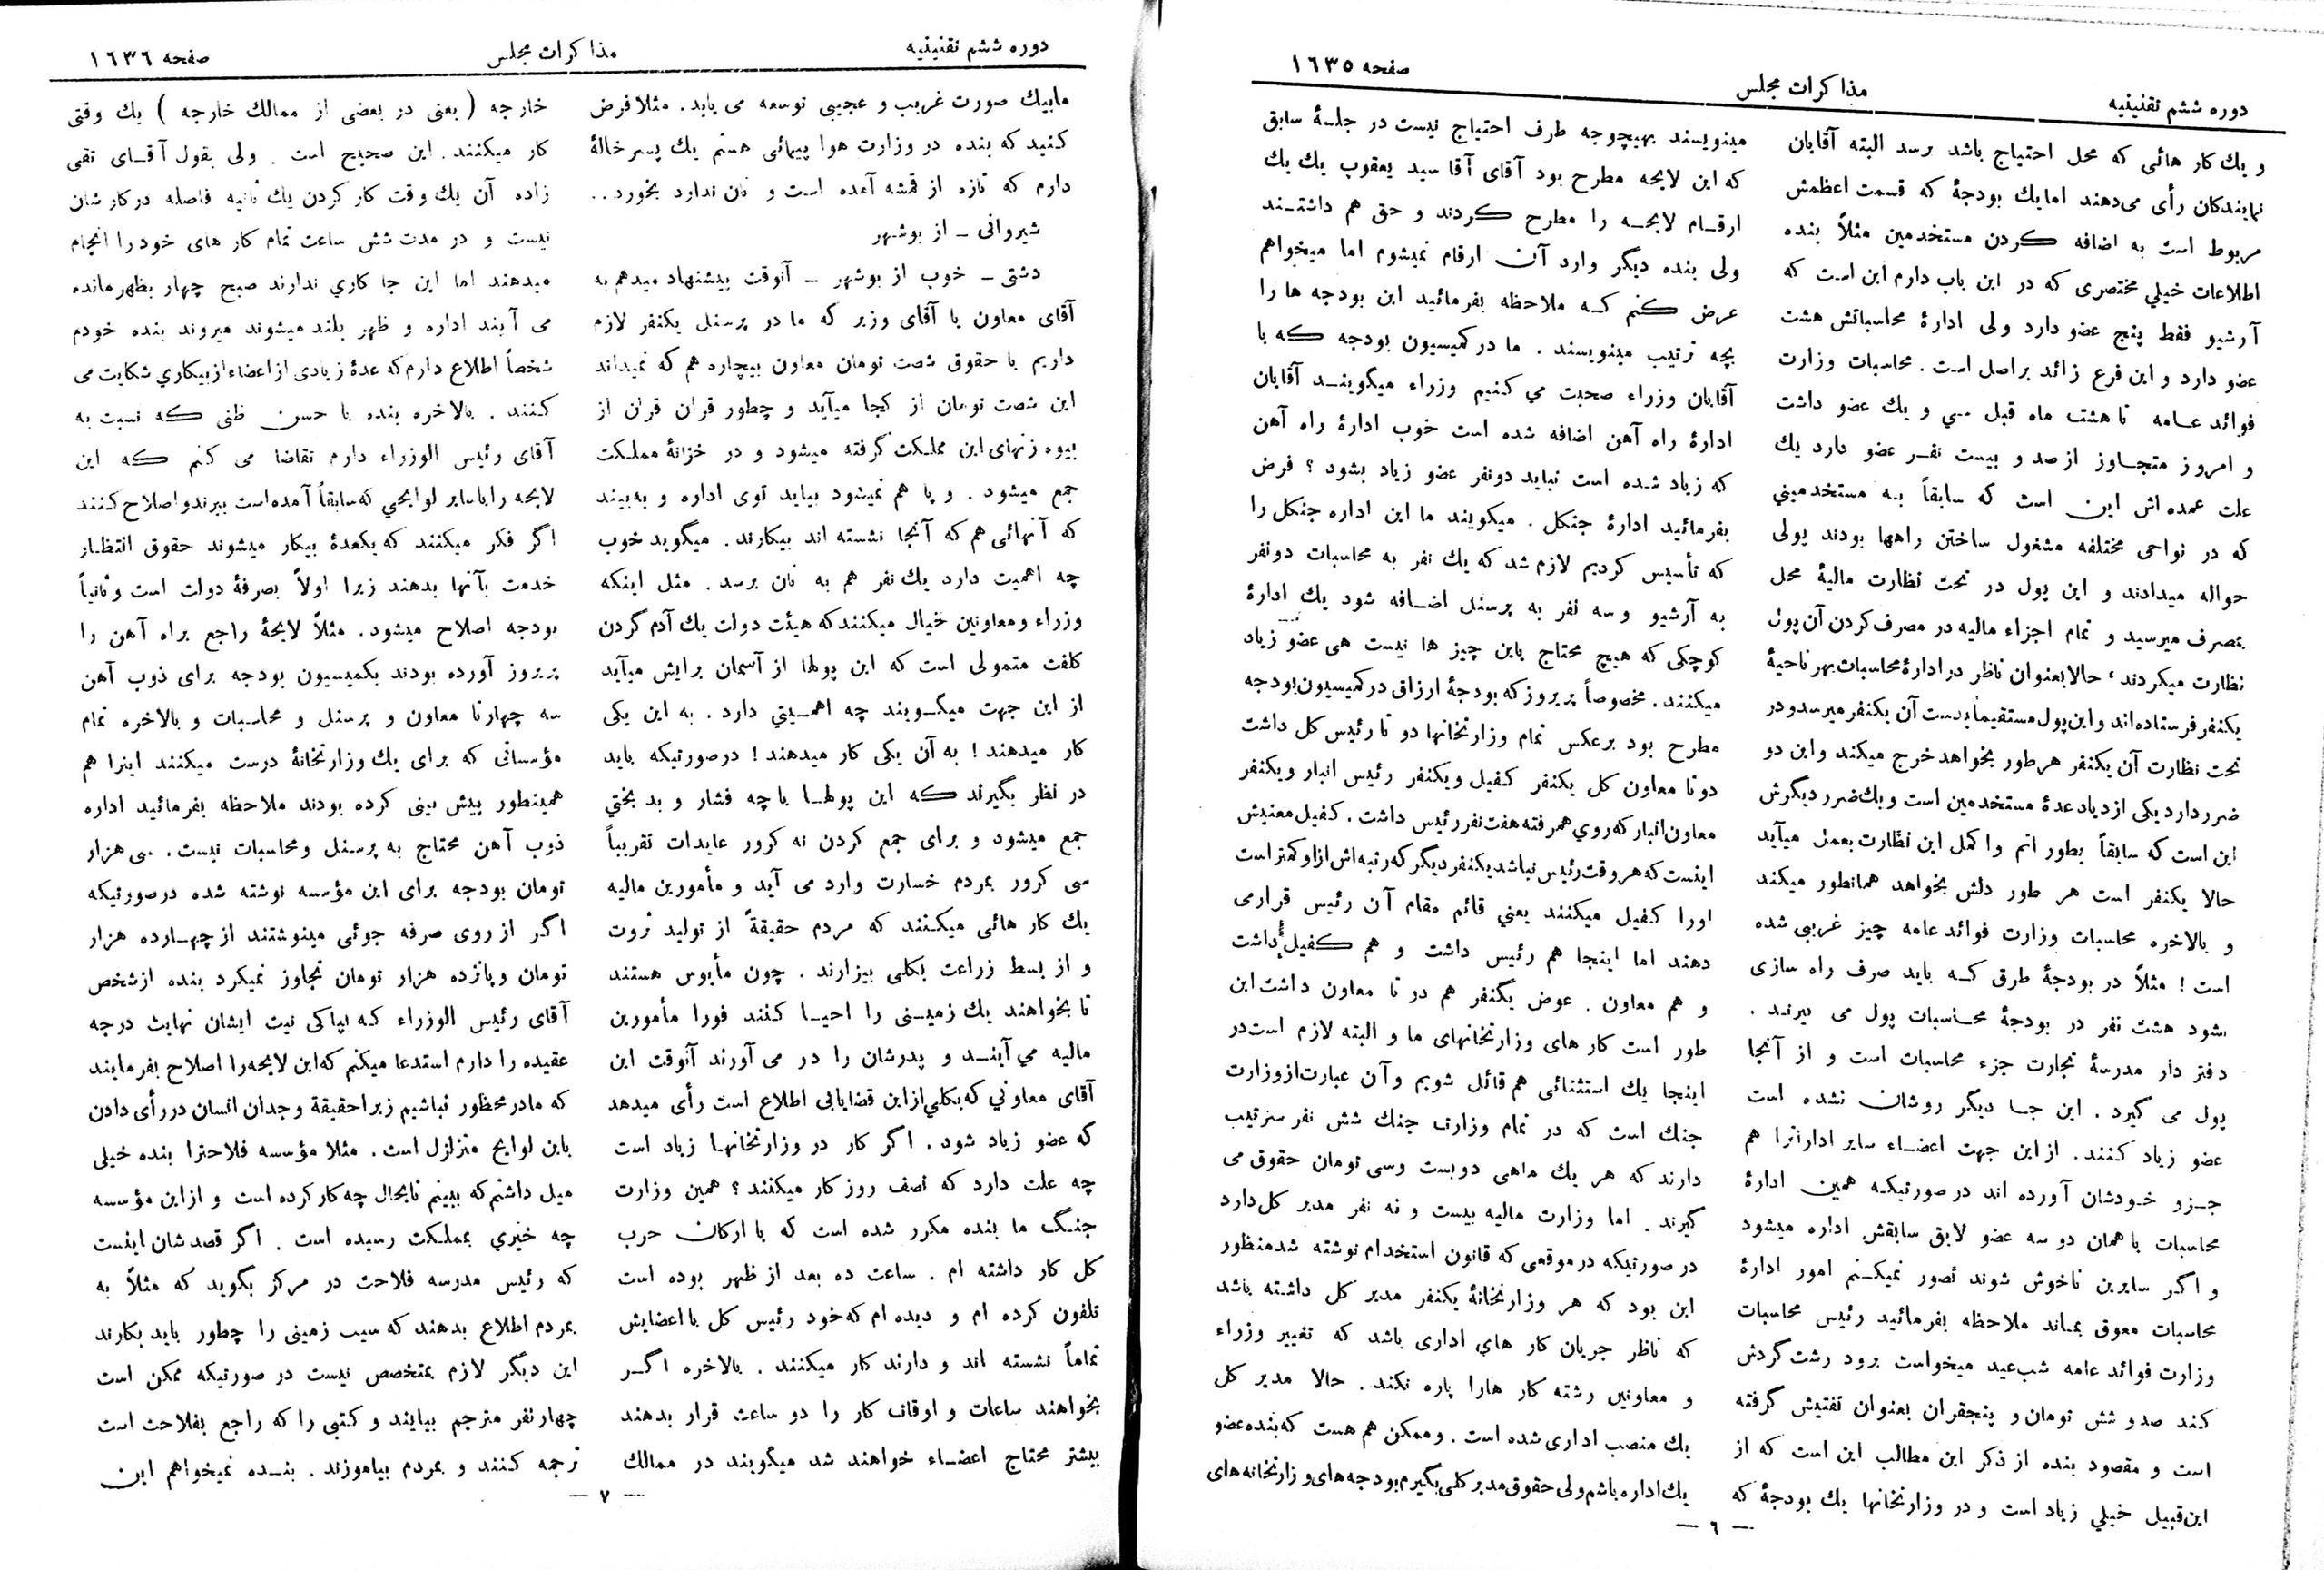 دوره ششم تقنینیه
مذاکرات مجلس
صفحه ۱۶۳۵
و یك کار هائی که محل احتیاج باشد برسد البته آقایان
نمایندکان رأی می‌دهند اما یك بودجهٔ که قسمت اعظمش
مربوط است به اضافه کردن مستخدمین مثلاً بنده
اطلاعات خیلي مختصری که در این باب دارم این است که
آرشیو فقط پنج عضو دارد ولی ادارهٔ محاسباتش هشت
عضو دارد و این فرع زائد بر اصل است . محاسبات وزارت
فوائد عامه تا هشت ماه قبل سی و یك عضو داشت
و امروز متجاوز از صد و بیست نفر عضو دارد یك
علت عمده اش این است که سابقاً به مستخدمیني
که در نواحی مختلفه مشغول ساختن راهها بودند پولی
حواله میدادند و این پول در تحت نظارت مالیهٔ محل
بمصرف میرسید و تمام اجزاء مالیه در مصرف کردن آن پول
نظارت میکردند ، حالا بعنوان ناظر در ادارهٔ محاسبات بهر ناحیهٔ
یکنفر فرستاده‌اند و این پول مستقیماً بدست آن یکنفر میرسد و در
تحت نظارت آن یکنفر هر طور بخواهد خرج میکند و این دو
ضرر دارد یکی ازدیاد عدهٔ مستخدمین است و یك ضرر دیگرش
این است که سابقاً بطور اتم و اکمل این نظارت بعمل میآید
حالا یکنفر است هر طور دلش بخواهد همانطور میکند
و بالاخره محاسبات وزارت فوائد عامه چیز غریبی شده
است ! مثلاً در بودجهٔ طرق که باید صرف راه سازی
شود هشت نفر در بودجهٔ محاسبات پول می برند .
دفتر دار مدرسهٔ تجارت جزء محاسبات است و از آنجا
پول می گیرد . این جا دیگر روشان نشده است
عضو زیاد کنند . از این جهت اعضاء سایر ادارا‌ترا هم
جزو خودشان آورده اند در صورتیکه همین ادارهٔ
محاسبات با همان دو سه عضو لایق سابقش اداره میشود
و اگر سایرین ناخوش شوند تصور نمیکنم امور ادارهٔ
محاسبات معوق بماند ملاحظه بفرمائید رئیس محاسبات
وزارت فوائد عامه شب عید میخواست برود رشت گردش
کند صد و شش تومان و پنجقران بعنوان تفتیش گرفته
است و مقصود بنده از ذکر این مطالب این است که از
این قبیل خیلي زیاد است و در وزارتخانها یك بودجهٔ که
مینویسند بهیچوجه طرف احتیاج نیست در جلسهٔ سابق
که این لایحه مطرح بود آقای آقا سید یعقوب یك یك
ارقام لایحه را مطرح کردند و حق هم داشتند
ولی بنده دیگر وارد آن ارقام نمیشوم اما میخواهم
عرض کنم که ملاحظه بفرمائید این بودجه ها را
بچه ترتیب مینویسند . ما در کمیسیون بودجه که با
آقایان وزراء صحبت می کنیم وزراء میگویند آقایان
ادارهٔ راه آهن اضافه شده است خوب ادارهٔ راه آهن
که زیاد شده است نباید دونفر عضو زیاد بشود ؟ فرض
بفرمائید ادارهٔ جنکل . میکویند ما این اداره جنکل را
که تأسیس کردیم لازم شد که یك نفر به محاسبات دونفر
به آرشیو و سه نفر به پرسنل اضافه شود یك ادارهٔ
کوچکی که هیچ محتاج باین چیز ها نیست هی عضو زیاد
میکنند . مخصوصاً پریروز که بودجهٔ ارزاق در کمیسیون بودجه
مطرح بود برعکس تمام وزارتخانها دو تا رئیس کل داشت
دو تا معاون کل یکنفر کفیل و یکنفر رئیس انبار و یکنفر
معاون انبار که روي همرفته هفت نفر رئیس داشت . کفیل معنیش
اینست که هر وقت رئیس نباشد یکنفر دیگر که رتبه‌اش از او کمتر است
اورا کفیل میکنند یعني قائم مقام آن رئیس قرار می
دهند اما اینجا هم رئیس داشت و هم کفیل داشت
و هم معاون . عوض یگنفر هم دو تا معاون داشت این
طور است کار های وزارتخانهای ما و البته لازم است در
اینجا یك استثنائی هم قائل شویم و آن عبارت از وزارت
جنك است که در تمام وزارت جنك شش نفر سر‌تیب
دارند که هر یك ماهی دویست و سی تومان حقوق می
گیرند . اما وزارت مالیه بیست و نه نفر مدیر کل دارد
در صورتیکه در موقعی که قانون استخدام نوشته شد منظور
این بود که هر وزارتخانهٔ یکنفر مدیر کل داشته باشد
که ناظر جریان کار های اداری باشد که تغییر وزراء
و معاونین رشته کار هارا پاره نکند . حالا مدیر کل
یك منصب اداری شده است . و ممکن هم هست که بنده عضو
یك اداره باشم ولی حقوق مدیر کلی بگیرم بودجه های وزارتخانه های
— ٦ —
دوره ششم تقنینیه
مذاکرات مجلس
صفحه ۱۶۳۶
مابیك صورت غریب و عجیبی توسعه می یابد . مثلا فرض
کنید که بنده در وزارت هوا پیمائی هستم یك پسر خالهٔ
دارم که تازه از قمشه آمده است و نان ندارد بخورد ...
شیروانی ــ از بوشهر
دشتی ــ خوب از بوشهر ــ آنوقت پیشنهاد میدهم به
آقای معاون یا آقای وزیر که ما در پرسنل یکنفر لازم
داریم با حقوق شصت تومان معاون بیچاره هم که نمیداند
این شصت تومان از کجا میآید و چطور قران قران از
بیوه زنهای این مملکت گرفته میشود و در خزانهٔ مملکت
جمع میشود . و پا هم نمیشود بیاید توی اداره و به‌بیند
که آنهائی هم که آنجا نشسته اند بیکارند . میگوید خوب
چه اهمیت دارد یك نفر هم به نان برسد . مثل اینکه
وزراء و معاونین خیال میکنند که هیئت دولت یك آدم گردن
کلفت متمولی است که این پولها از آسمان برایش میآید
از این جهت میگویند چه اهمیتي دارد . به این یکی
کار میدهند ! به آن یکی کار میدهند ! در صورتیکه باید
در نظر بگیرند که این پولها با چه فشار و بد بختي
جمع میشود و برای جمع کردن نه کرور عایدات تقریباً
سی کرور بمردم خسارت وارد می آید و مأمورین مالیه
یك کار هائی میکنند که مردم حقیقةً از تولید ثروت
و از بسط زراعت بکلی بیزارند . چون مأیوس هستند
تا بخواهند یك زمینی را احیا کنند فورا مأمورین
مالیه می آیند و پدرشان را در می آورند آنوقت این
آقای معاوني که بکلي از این قضایا بی اطلاع است رأی میدهد
که عضو زیاد شود . اگر کار در وزارتخانها زیاد است
چه علت دارد که نصف روز کار میکنند ؟ همین وزارت
جنگ ما بنده مکرر شده است که با ارکان حرب
کل کار داشته ام . ساعت ده بعد از ظهر بوده است
تلفون کرده ام و دیده ام که خود رئیس کل با اعضایش
تماماً نشسته اند و دارند کار میکنند . بالاخره اگر
بخواهند ساعات و اوقات کار را دو ساعت قرار بدهند
بیشتر محتاج اعضاء خواهند شد میگویند در ممالك
خارجه ( یعنی در بعضی از ممالك خارجه ) یك وقتی
کار میکنند . این صحیح است . ولی بقول آقای تقی
زاده آن یك وقت کار کردن یك ثانیه فاصله در کار شان
نیست و در مدت شش ساعت تمام کار های خود را انجام
میدهند اما این جا کاري ندارند صبح چهار بظهر مانده
می آیند اداره و ظهر بلند میشوند میروند بنده خودم
شخصاً اطلاع دارم که عدهٔ زیادی از اعضاء از بیکاري شکایت می
کنند . بالاخره بنده با حسن ظنی که نسبت به
آقای رئیس الوزراء دارم تقاضا می کنم که این
لایحه را با سایر لوایحي که سابقاً آمده است ببرند و اصلاح کنند
اگر فکر میکنند که یکعدهٔ بیکار میشوند حقوق انتظار
خدمت بآنها بدهند زیرا اولاً بصرفهٔ دولت است و ثانیاً
بودجه اصلاح میشود . مثلاً لایحهٔ راجع براه آهن را
پریروز آورده بودند بکمیسیون بودجه برای ذوب آهن
سه چهارتا معاون و پرسنل و محاسبات و بالاخره تمام
مؤسساتی که برای یك وزارتخانهٔ درست میکنند اینرا هم
همینطور پیش بینی کرده بودند ملاحظه بفرمائید اداره
ذوب آهن محتاج به پرسنل و محاسبات نیست . سی هزار
تومان بودجه برای این مؤسسه نوشته شده در صورتیکه
اگر از روی صرفه جوئی مینوشتند از چهارده هزار
تومان و پانزده هزار تومان تجاوز نمیکرد بنده از شخص
آقای رئیس الوزراء که بپاکی نیت ایشان نهایت درجه
عقیده را دارم استدعا میکنم که این لایحه را اصلاح بفرمایند
که ما در محظور نباشیم زیرا حقیقة وجدان انسان در رأی دادن
باین لوایح متزلزل است . مثلا مؤسسه فلاحترا بنده خیلی
میل داشتم که ببینم تا بحال چه کار کرده است و از این مؤسسه
چه خیري بمملکت رسیده است . اگر قصدشان اینست
که رئیس مدرسه فلاحت در مرکز بگوید که مثلاً به
بمردم اطلاع بدهند که سیب زمینی را چطور باید بکارند
این دیگر لازم بمتخصص نیست در صورتیکه ممکن است
چهار نفر مترجم بیایند و کتبی را که راجع بفلاحت است
ترجمه کنند و بمردم بیاموزند . بنده نمیخواهم این
— ٧ —